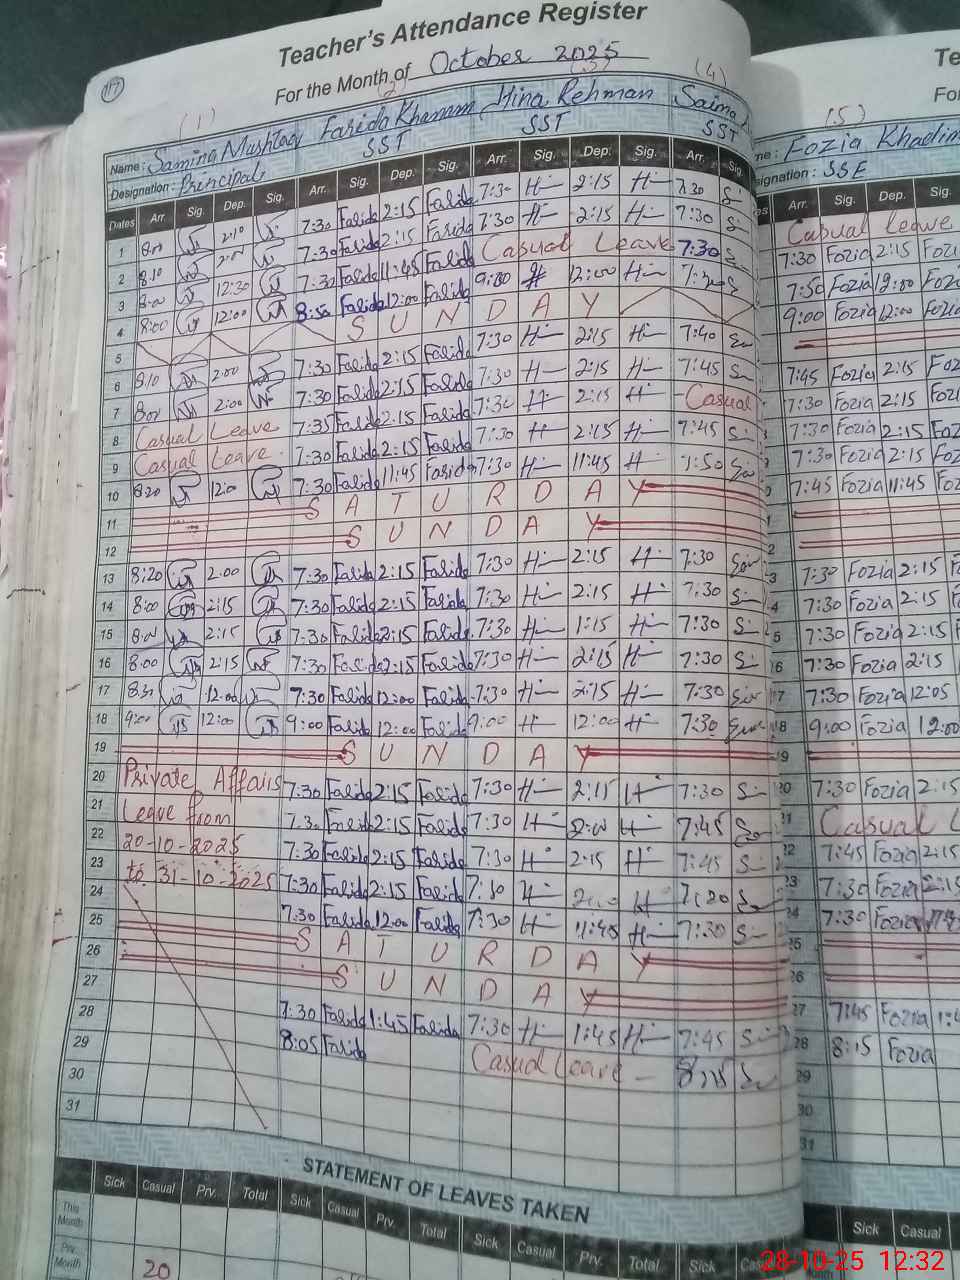 Teacher's Attendance Register
117
For the Month of October 2025
(1) (2) (3) (4) (5)
Name: Samina Mushtaq Farida Khanam Hina Rehman Saima Name: Fozia Khadim
Designation: Principal SST SST SST Designation: SSE
Dates Arr. Sig. Dep. Sig. Arr. Sig. Dep. Sig. Arr. Sig. Dep. Sig. Arr. Sig. Arr. Sig. Dep. Sig.
1 8:00 2:10 7:30 Farida 2:15 Farida 7:30 Hi 2:15 Hi 7:30 Casual Leave
2 8:10 7:30 Farida 2:15 Farida 7:30 Hi 2:15 Hi 7:30 7:30 Fozia 2:15 Fozia
3 8:00 12:30 7:30 Farida 11:45 Farida Casual Leave 7:30 7:50 Fozia 12:00 Fozia
4 8:00 12:00 8:50 Farida 12:00 Farida 9:00 Hi 12:00 Hi 9:00 Fozia 12:00 Fozia
5 SUNDAY
6 8:10 2:00 7:30 Farida 2:15 Farida 7:30 Hi 2:15 Hi 7:40 7:45 Fozia 2:15 Foz
7 8:00 2:00 7:30 Farida 2:15 Farida 7:30 Hi 2:15 Hi 7:45 7:30 Fozia 2:15 Foz
8 Casual Leave 7:35 Farida 2:15 Farida 7:30 Hi 2:15 Hi Casual 7:30 Fozia 2:15 Foz
9 Casual Leave 7:30 Farida 2:15 Farida 7:30 Hi 2:15 Hi 7:45 7:30 Fozia 2:15 Foz
10 8:20 12:00 7:30 Farida 11:45 Farida 7:30 Hi 11:45 Hi 7:50 7:45 Fozia 11:45 Foz
11 SATURDAY
12 SUNDAY
13 8:20 2:00 7:30 Farida 2:15 Farida 7:30 Hi 2:15 Hi 7:30 7:30 Fozia 2:15
14 8:00 2:15 7:30 Farida 2:15 Farida 7:30 Hi 2:15 Hi 7:30 7:30 Fozia 2:15
15 2:15 7:30 Farida 2:15 Farida 7:30 Hi 1:15 Hi 7:30 7:30 Fozia 2:15
16 8:00 2:15 7:30 Farida 2:15 Farida 7:30 Hi 2:15 Hi 7:30 7:30 Fozia 2:15
17 12:00 7:30 Farida 12:00 Farida 7:30 Hi 2:15 Hi 7:30 7:30 Fozia 12:05
18 9:00 12:00 9:00 Farida 12:00 Farida 9:00 Hi 12:00 Hi 7:30 9:00 Fozia 12:00
19 SUNDAY
20 Private Affairs 7:30 Farida 2:15 Farida 7:30 Hi 2:15 Hi 7:30 7:30 Fozia 2:15
21 Leave from 7:30 Farida 2:15 Farida 7:30 Hi Hi 7:45 Casual L
22 20-10-2025 7:30 Farida 2:15 Farida 7:30 Hi 2:15 Hi 7:45 7:45 Fozia 2:15
23 to 31-10-2025 7:30 Farida 2:15 Farida 7:30 Hi Hi 7:30 Fozia 2:15
24 7:30 Farida 12:00 Farida 7:30 Hi 11:45 Hi 7:30 7:30 Fozia
25 SATURDAY
26 SUNDAY
27 7:30 Farida 1:45 Farida 7:30 Hi 1:45 Hi 7:45 7:45 Fozia
28 8:05 Farida Casual Leave 8:15 Fozia
29
30
31
STATEMENT OF LEAVES TAKEN
Sick Casual Prv. Total Sick Casual Prv. Total Sick Casual Prv. Total Sick Sick Casual
This Month
Prv. Month 20
28-10-25 12:32